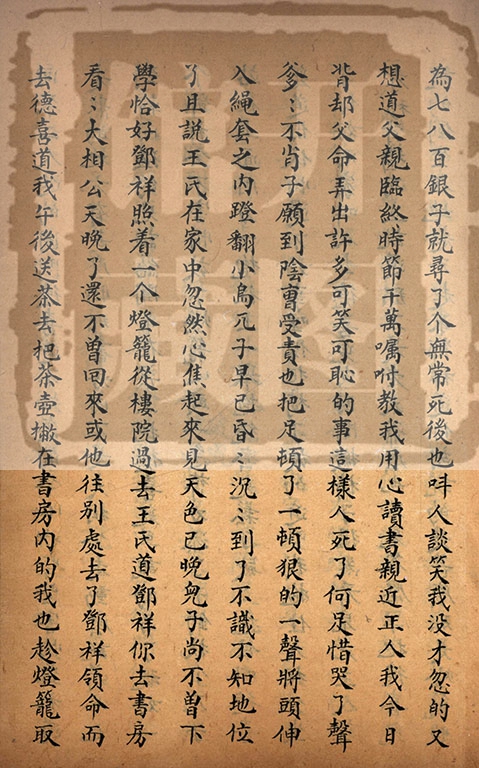 為七八百銀子就尋了个無常死後也呌人談笑我没才忽的又
想道父親臨終時節千萬嘱咐教我用心讀書親近正人我今日
背却父命弄出許多可笑可恥的事這樣人死了何足惜哭了聲
爹〻不肖子願到陰曹受責也把足頓了一頓狠的一聲將頭伸
入繩套之内蹬翻小鳥兀子早已昏〻沉〻到了不識不知地位
了且説王氏在家中忽然心焦起來見天色已晚兒子尚不曾下
學恰好鄧祥照着一个燈籠從樓院過去王氏道鄧祥你去書房
看〻大相公天晚了還不曾回來或他往别處去了鄧祥領命而
去德喜道我午後送茶去把茶壺撇在書房内的我也趁燈籠取